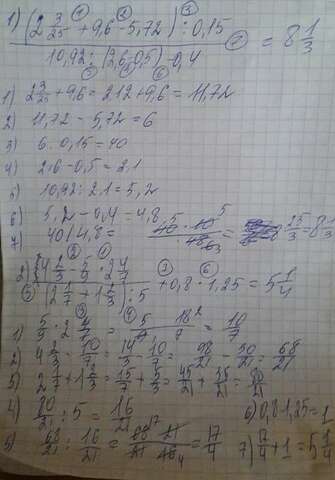 1) (2 3/25 + 9,6 - 5,72) : 0,15
10,92 : (2,6 - 0,5) - 0,4
= 8 1/3
1) 2 3/25 + 9,6 = 2,12 + 9,6 = 11,72
2) 11,72 - 5,72 = 6
3) 6 : 0,15 = 40
4) 2,6 - 0,5 = 2,1
5) 10,92 : 2,1 = 5,2
6) 5,2 - 0,4 = 4,8
7) 40/4,8 = 40 · 10 / 48 = 25/3 = 8 1/3
2) (4 2/3 - 5/3 · 2 4/7)
(2 1/7 + 1 2/3) : 5
+ 0,8 · 1,25 = 5 1/4
1) 5/3 · = 10/7
2) 4 2/3 - 10/7 = 14/3 - 10/7 = 98/21 - 30/21 = 68/21
3) 2 1/7 + 1 2/3 = 15/7 + 5/3 = 45/21 + 35/21 = 80/21
4) 80/21 : 5 = 16/21
6) 0,8 · 1,25 = 1
5) 68/21 : 16/21 = 68 · 21 / 21 · 16 = 17/4
7) 17/4 + 1 = 5 1/4